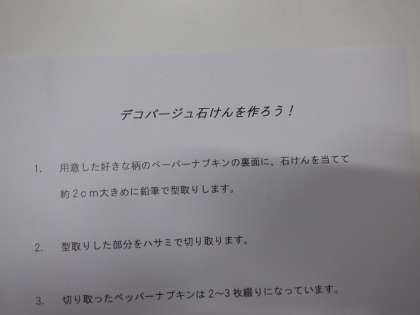 デコパージュ石けんを作ろう！
1. 用意した好きな柄のペーパーナプキンの裏面に、石けんを当てて
約2cm大きめに鉛筆で型取りします。
2. 型取りした部分をハサミで切り取ります。
3. 切り取ったペッパーナプキンは2～3枚綴りになっています。